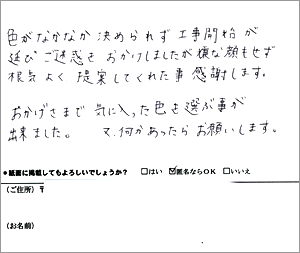 色がなかなか決められず工事開始が
延びご迷惑をおかけしましたが嫌な顔もせず
根気よく提案してくれた事感謝します。
おかげさまで気に入った色を選ぶ事が
出来ました。 又、何かあったらお願いします。
●紙面に掲載してもよろしいでしょうか? □はい ☑匿名ならOK □いいえ
(ご住所) 〒
(お名前)